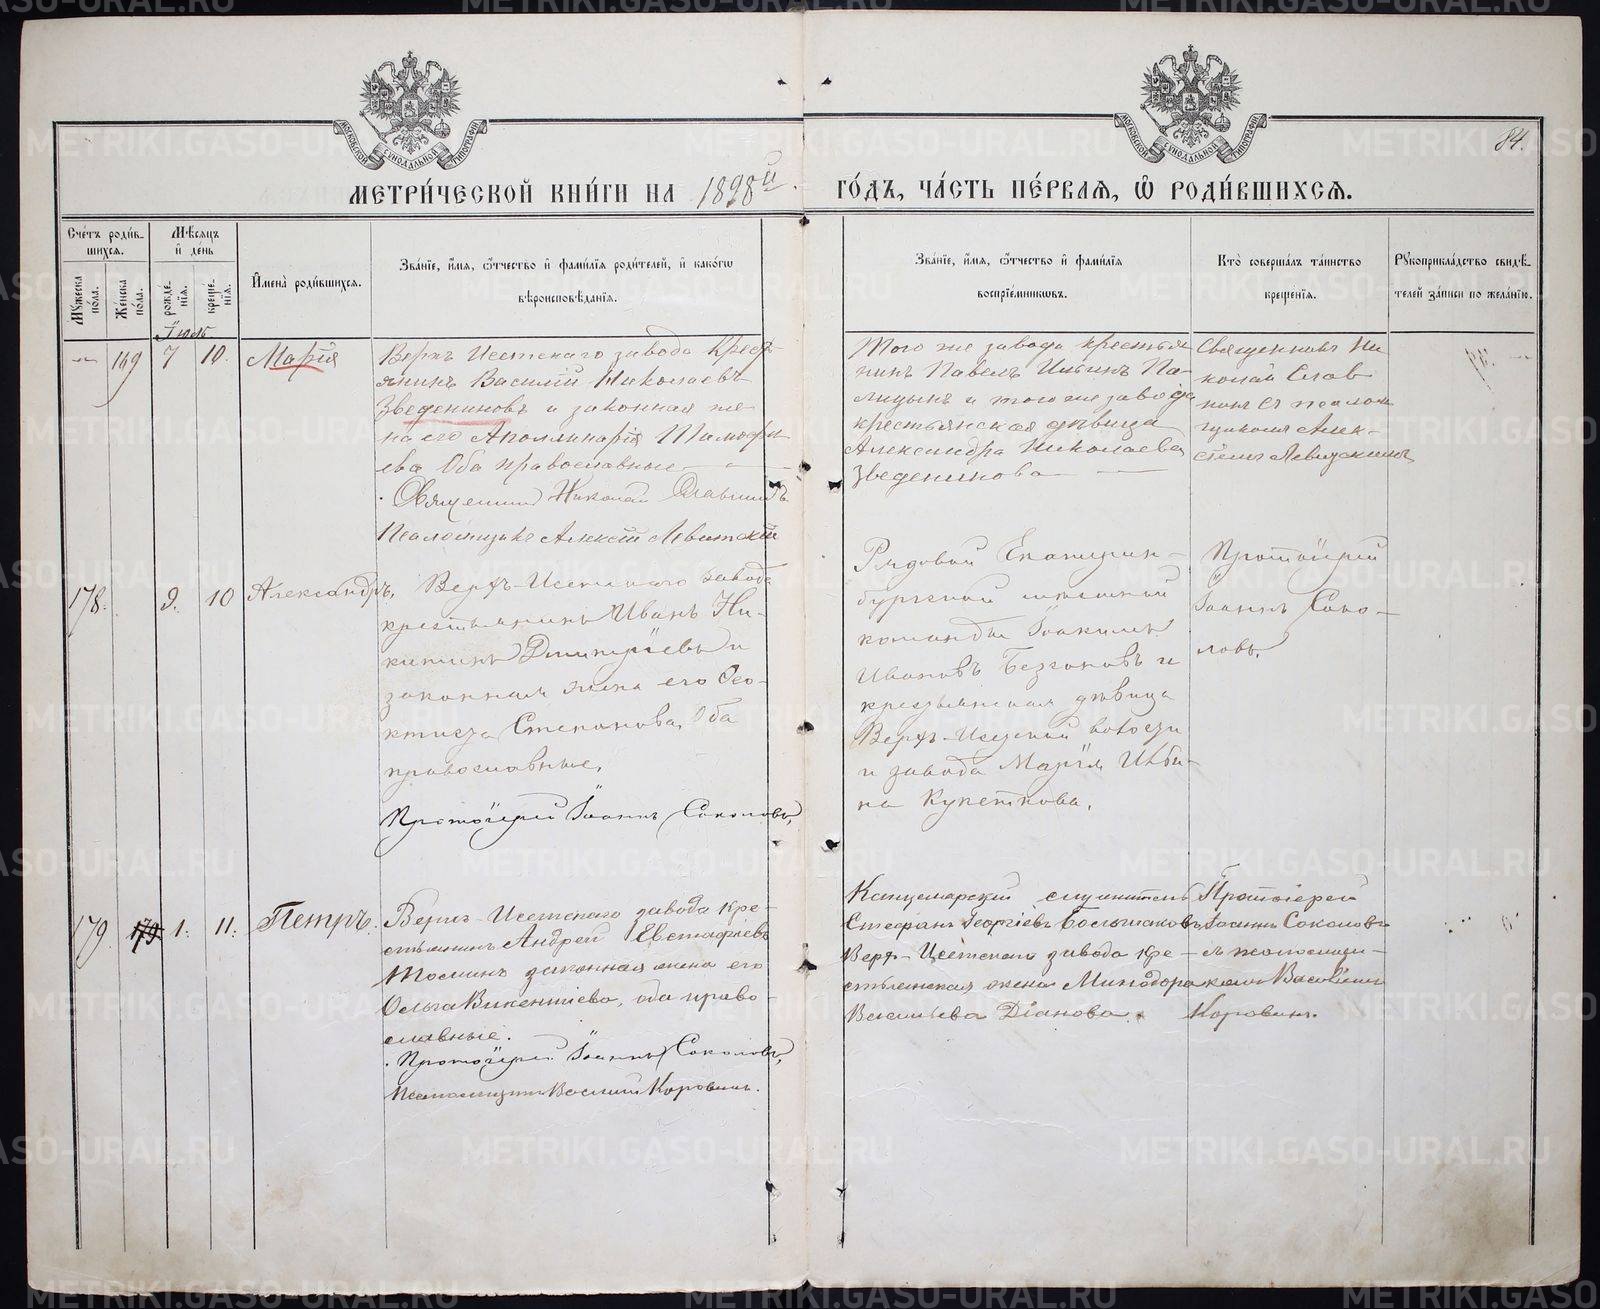 МОСКОВСКОЙ СУНОДАЛЬНОЙ ТИПОГРАФІИ
МОСКОВСКОЙ СУНОДАЛЬНОЙ ТИПОГРАФІИ
84.
МЕТРИ́ЧЕСКОЙ КНИ́ГИ НА 1898й. ГО́ДЪ, ЧА́СТЬ ПЕ́РВАѦ, Ѡ РОДИ́ВШИХСѦ.
Сче́тъ роди́в-
шихсѧ.
Мѣ́сѧцъ
и҆ де́нь
Мꙋ́жеска
по́ла.
Же́нска
по́ла.
рожде́-
нїѧ.
креще́-
нїѧ.
И҆мена̀ роди́вшихсѧ.
Зва́нїе, и҆́мѧ, ѻ҆́тчество и҆ фами́лїѧ роди́телей, и҆ како́гѡ
вѣроисповѣ́данїѧ.
Зва́нїе, и҆́мѧ, ѻ҆́тчество и҆ фами́лїѧ
воспрїе́мникѡвъ.
Кто̀ соверша́лъ та́инство
креще́нїѧ.
Рꙋкоприкла́дство свидѣ́-
телей за́писи по жела́нїю.
Іюль
169 7 10. Марія
Верхъ Исетскаго завода Крест-
янинъ Василій Николаевъ
Зведениновъ и законная же-
на его Аполлинарія Тимофѣ-
ева Оба православные
Священникъ Николай Славнинъ
Псаломщикъ Алексій Левитскій
Того же завода крестья
нинъ Павелъ Ильинъ Па-
лицынъ и того же завода
крестьянская дѣвица
Александра Николаева
Зведенинова
Священникъ Ни
колай Слав
нинъ съ псалом
щикомъ Алек-
сѣемъ Левитскимъ
178. 9. 10 Александръ,
Верхъ-Исетскаго завода
крестьянинъ Иванъ Ни-
китинъ Дмитріевъ и
законная жена его Фео-
ктиста Степанова, Оба
православные,
Протоіерей Іоаннъ Соколовъ,
Рядовой Екатерин-
бургской мѣстной
команды Іоакимъ
Ивановъ Безгоновъ и
крестьянская дѣвица
Верхъ-Исетской волости
и завода Марія Ильи-
на
Протоіерей
Іоаннъ Соко-
ловъ.
179. 179. 1. 11. Петръ.
Верхъ-Исетскаго завода кре-
стьянинъ Андрей Евстафіевъ
законная жена его
Ольга Викентіева, оба право-
славные.
Протоіерей Іоаннъ Соколовъ,
Псаломщикъ Василій Коровинъ.
Канцелярскій служитель
Стефанъ Георгіевъ Большаковъ,
Верх-Исетскаго завода кре-
стьянская жена Минодора
Васильева Діанова.
Протоіерей
Іоаннъ Соколовъ
съ псаломщи-
комъ Василіемъ
Коровинъ.
METRIKI.GASO-URAL.RU